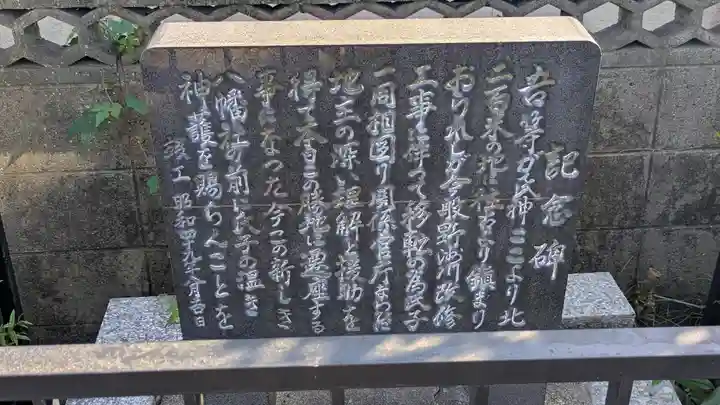 記念碑
吾等が氏神ここより北
二百米の地に往古より鎮まり
おわれしが今般野川改修
工事に伴って移転の為氏子
一同相図り関係官庁並び
地主の深い理解と援助を
得て本日この勝地に遷座する
事になった今この新しき
八幡社の前に氏子の温き
神護を賜らんことを
竣工昭和四十九年十月吉日